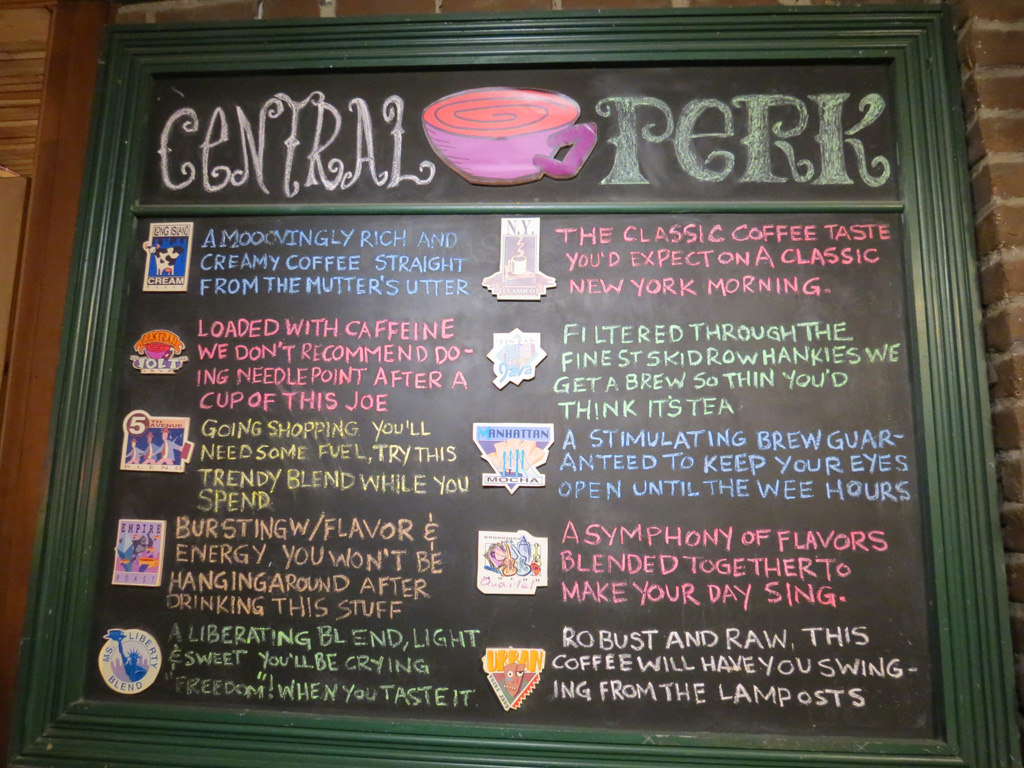 CENTRAL PERK
LONG ISLAND
CREAM
A MOOOVINGLY RICH AND
CREAMY COFFEE STRAIGHT
FROM THE MUTTER'S UTTER
CENTRAL
JOLT
LOADED WITH CAFFEINE
WE DON'T RECOMMEND DO-
ING NEEDLEPOINT AFTER A
CUP OF THIS JOE
5TH AVENUE
BLEND
GOING SHOPPING YOU'LL
NEED SOME FUEL, TRY THIS
TRENDY BLEND WHILE YOU
SPEND
EMPIRE
ROAST
BURSTING W/FLAVOR &
ENERGY, YOU WON'T BE
HANGING AROUND AFTER
DRINKING THIS STUFF
MS. LIBERTY
BLEND
A LIBERATING BLEND, LIGHT
& SWEET YOU'LL BE CRYING
"FREEDOM"! WHEN YOU TASTE IT
N.Y.
CLASSIC
THE CLASSIC COFFEE TASTE
YOU'D EXPECT ON A CLASSIC
NEW YORK MORNING.
Java
FILTERED THROUGH THE
FINEST SKID ROW HANKIES WE
GET A BREW SO THIN YOU'D
THINK IT'S TEA
MANHATTAN
MOCHA
A STIMULATING BREW GUAR-
ANTEED TO KEEP YOUR EYES
OPEN UNTIL THE WEE HOURS
Quartet
A SYMPHONY OF FLAVORS
BLENDED TOGETHER TO
MAKE YOUR DAY SING.
URBAN
ROBUST AND RAW, THIS
COFFEE WILL HAVE YOU SWING-
ING FROM THE LAMPOSTS